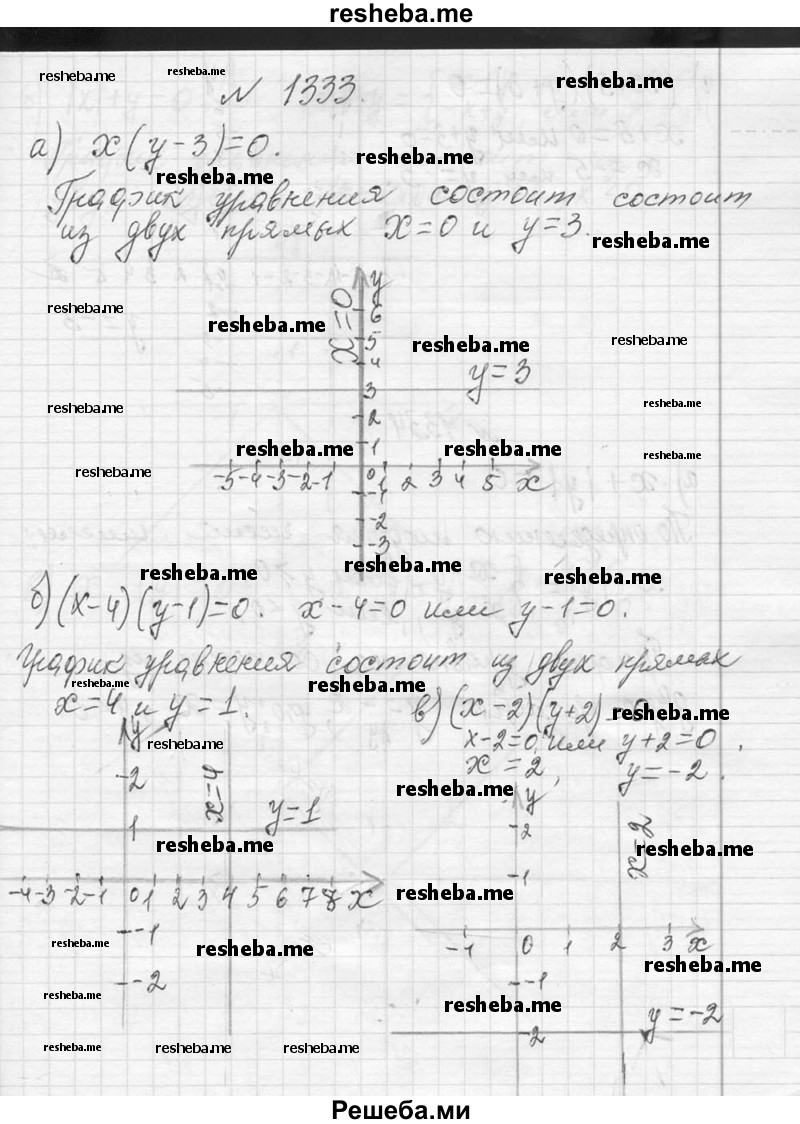 resheba.me
№ 1333.
а) x(y-3)=0.
График уравнения состоит состоит
из двух прямых x=0 и y=3.
y
x=0
6
5
4
y=3
3
2
1
-5 -4 -3 -2 -1 0 1 2 3 4 5 x
-1
-2
-3
б) (x-4)(y-1)=0. x-4=0 или y-1=0.
График уравнения состоит из двух прямых
x=4 и y=1.
y
2
x=4
1
y=1
-4 -3 -2 -1 0 1 2 3 4 5 6 7 8 x
-1
-2
в) (x-2)(y+2)=0
x-2=0 или y+2=0,
x=2, y=-2.
y
2
x=2
1
-1 0 1 2 3 x
-1
y=-2
-2
Решеба.ми